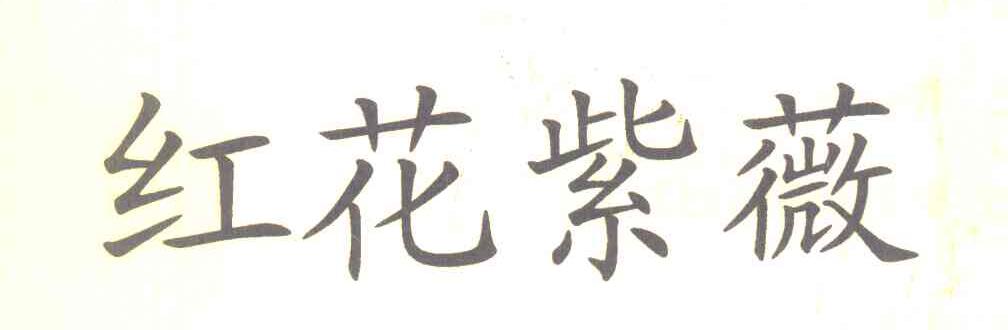 红花紫薇